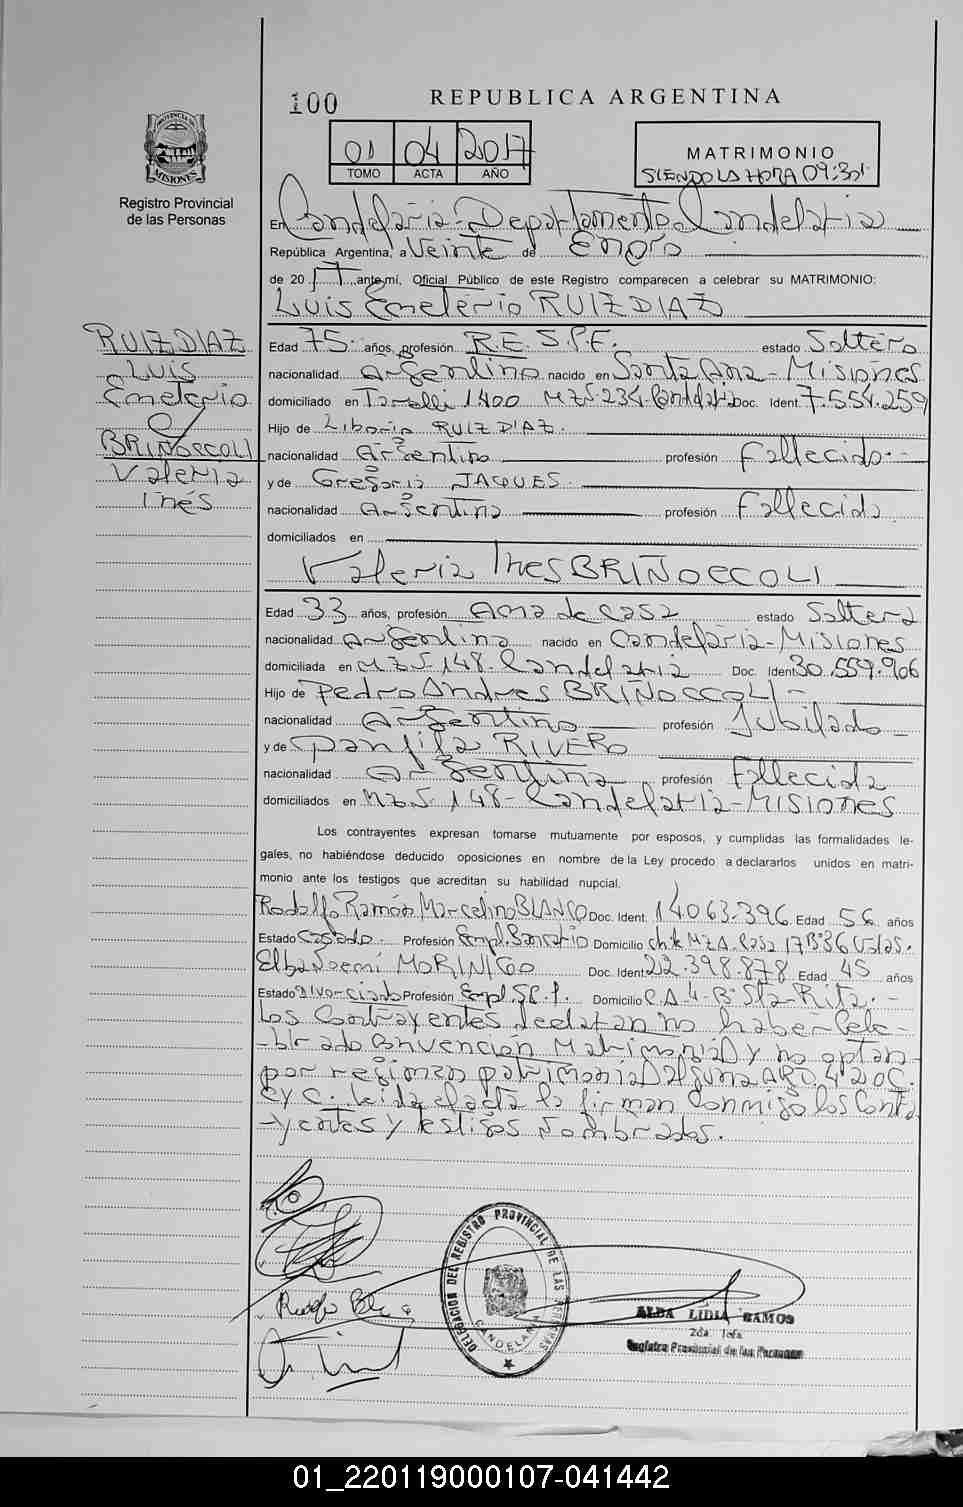 100
REPUBLICA ARGENTINA
PROVINCIA DE MISIONES
Registro Provincial
de las Personas
01 04 2017
TOMO ACTA AÑO
MATRIMONIO
SIENDO LA HORA 09:30
En Candelaria - Departamento Candelaria
República Argentina, a Veinte de Enero
de 2017 ante mí, Oficial Público de este Registro comparecen a celebrar su MATRIMONIO:
Luis Emeterio RUIZ DIAZ
RUIZ DIAZ
Luis
Emeterio
y
BRIÑOCCOLI
Valeria
Inés
Edad 75 años, profesión R.E.S.P.E. estado Soltero
nacionalidad Argentino nacido en Santa Ana - Misiones
domiciliado en 1400 MZS-234-Candelaria Doc. Ident. 7.554.259
Hijo de Liborio RUIZ DIAZ.
nacionalidad Argentino profesión Fallecido
y de Gregoria JAQUES
nacionalidad Argentina profesión Fallecida
domiciliados en
Valeria Ines BRIÑOCCOLI
Edad 33 años, profesión Ama de casa estado Soltera
nacionalidad Argentina nacido en Candelaria - Misiones
domiciliada en MZS-148-Candelaria Doc. Ident 30.559.906
Hijo de Pedro Andres BRIÑOCCOLI -
nacionalidad Argentino profesión Jubilado
y de Panfila RIVERO
nacionalidad Argentina profesión Fallecida
domiciliados en MZS-148-Candelaria-Misiones
Los contrayentes expresan tomarse mutuamente por esposos, y cumplidas las formalidades le-
gales, no habiéndose deducido oposiciones en nombre de la Ley procedo a declararlos unidos en matri-
monio ante los testigos que acreditan su habilidad nupcial.
Rodolfo Ramón Marcelino BLANCO Doc. Ident. 14063.396 Edad 56 años
Estado Casado. Profesión Empl. Domicilio MZA. Casa 17 B° 36
Elba Noemi MORINIGO Doc. Ident 22.398.878 Edad 45 años
Estado Divorciada Profesión Empl. Domicilio C.A 4-B° Sta-Rita. -
Los Contrayentes declaran no haber Cele-
-brado Convencion Matrimonial y no optan
por regimen patrimonial alguna ARD 420 C.
C y C. Leida el acta la firman Conmigo los Contra
-yentes y testigos Nombrados.
DELEGACION DEL REGISTRO PROVINCIAL DE LAS PERSONAS
CANDELARIA
ALDA LIDIA RAMOS
2da. Jefa
Registro Provincial de las Personas
01_220119000107-041442